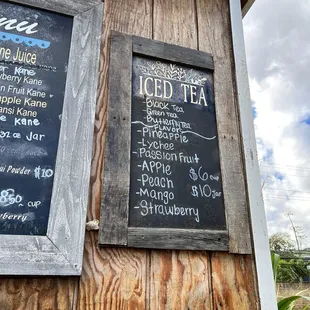 nu
ne Juice
berry Kane
on Fruit Kane
Apple Kane
ansi Kane
Kane
32oz Jar
Powder
$10
850
Cup
ICED TEA
-Black Tea
-Green Tea
-Butterfly Tea
Flavor
-Pineapple
-Lychee
-Passion Fruit
-Apple
-Peach $6
-Mango $10 Jar
-Strawberry